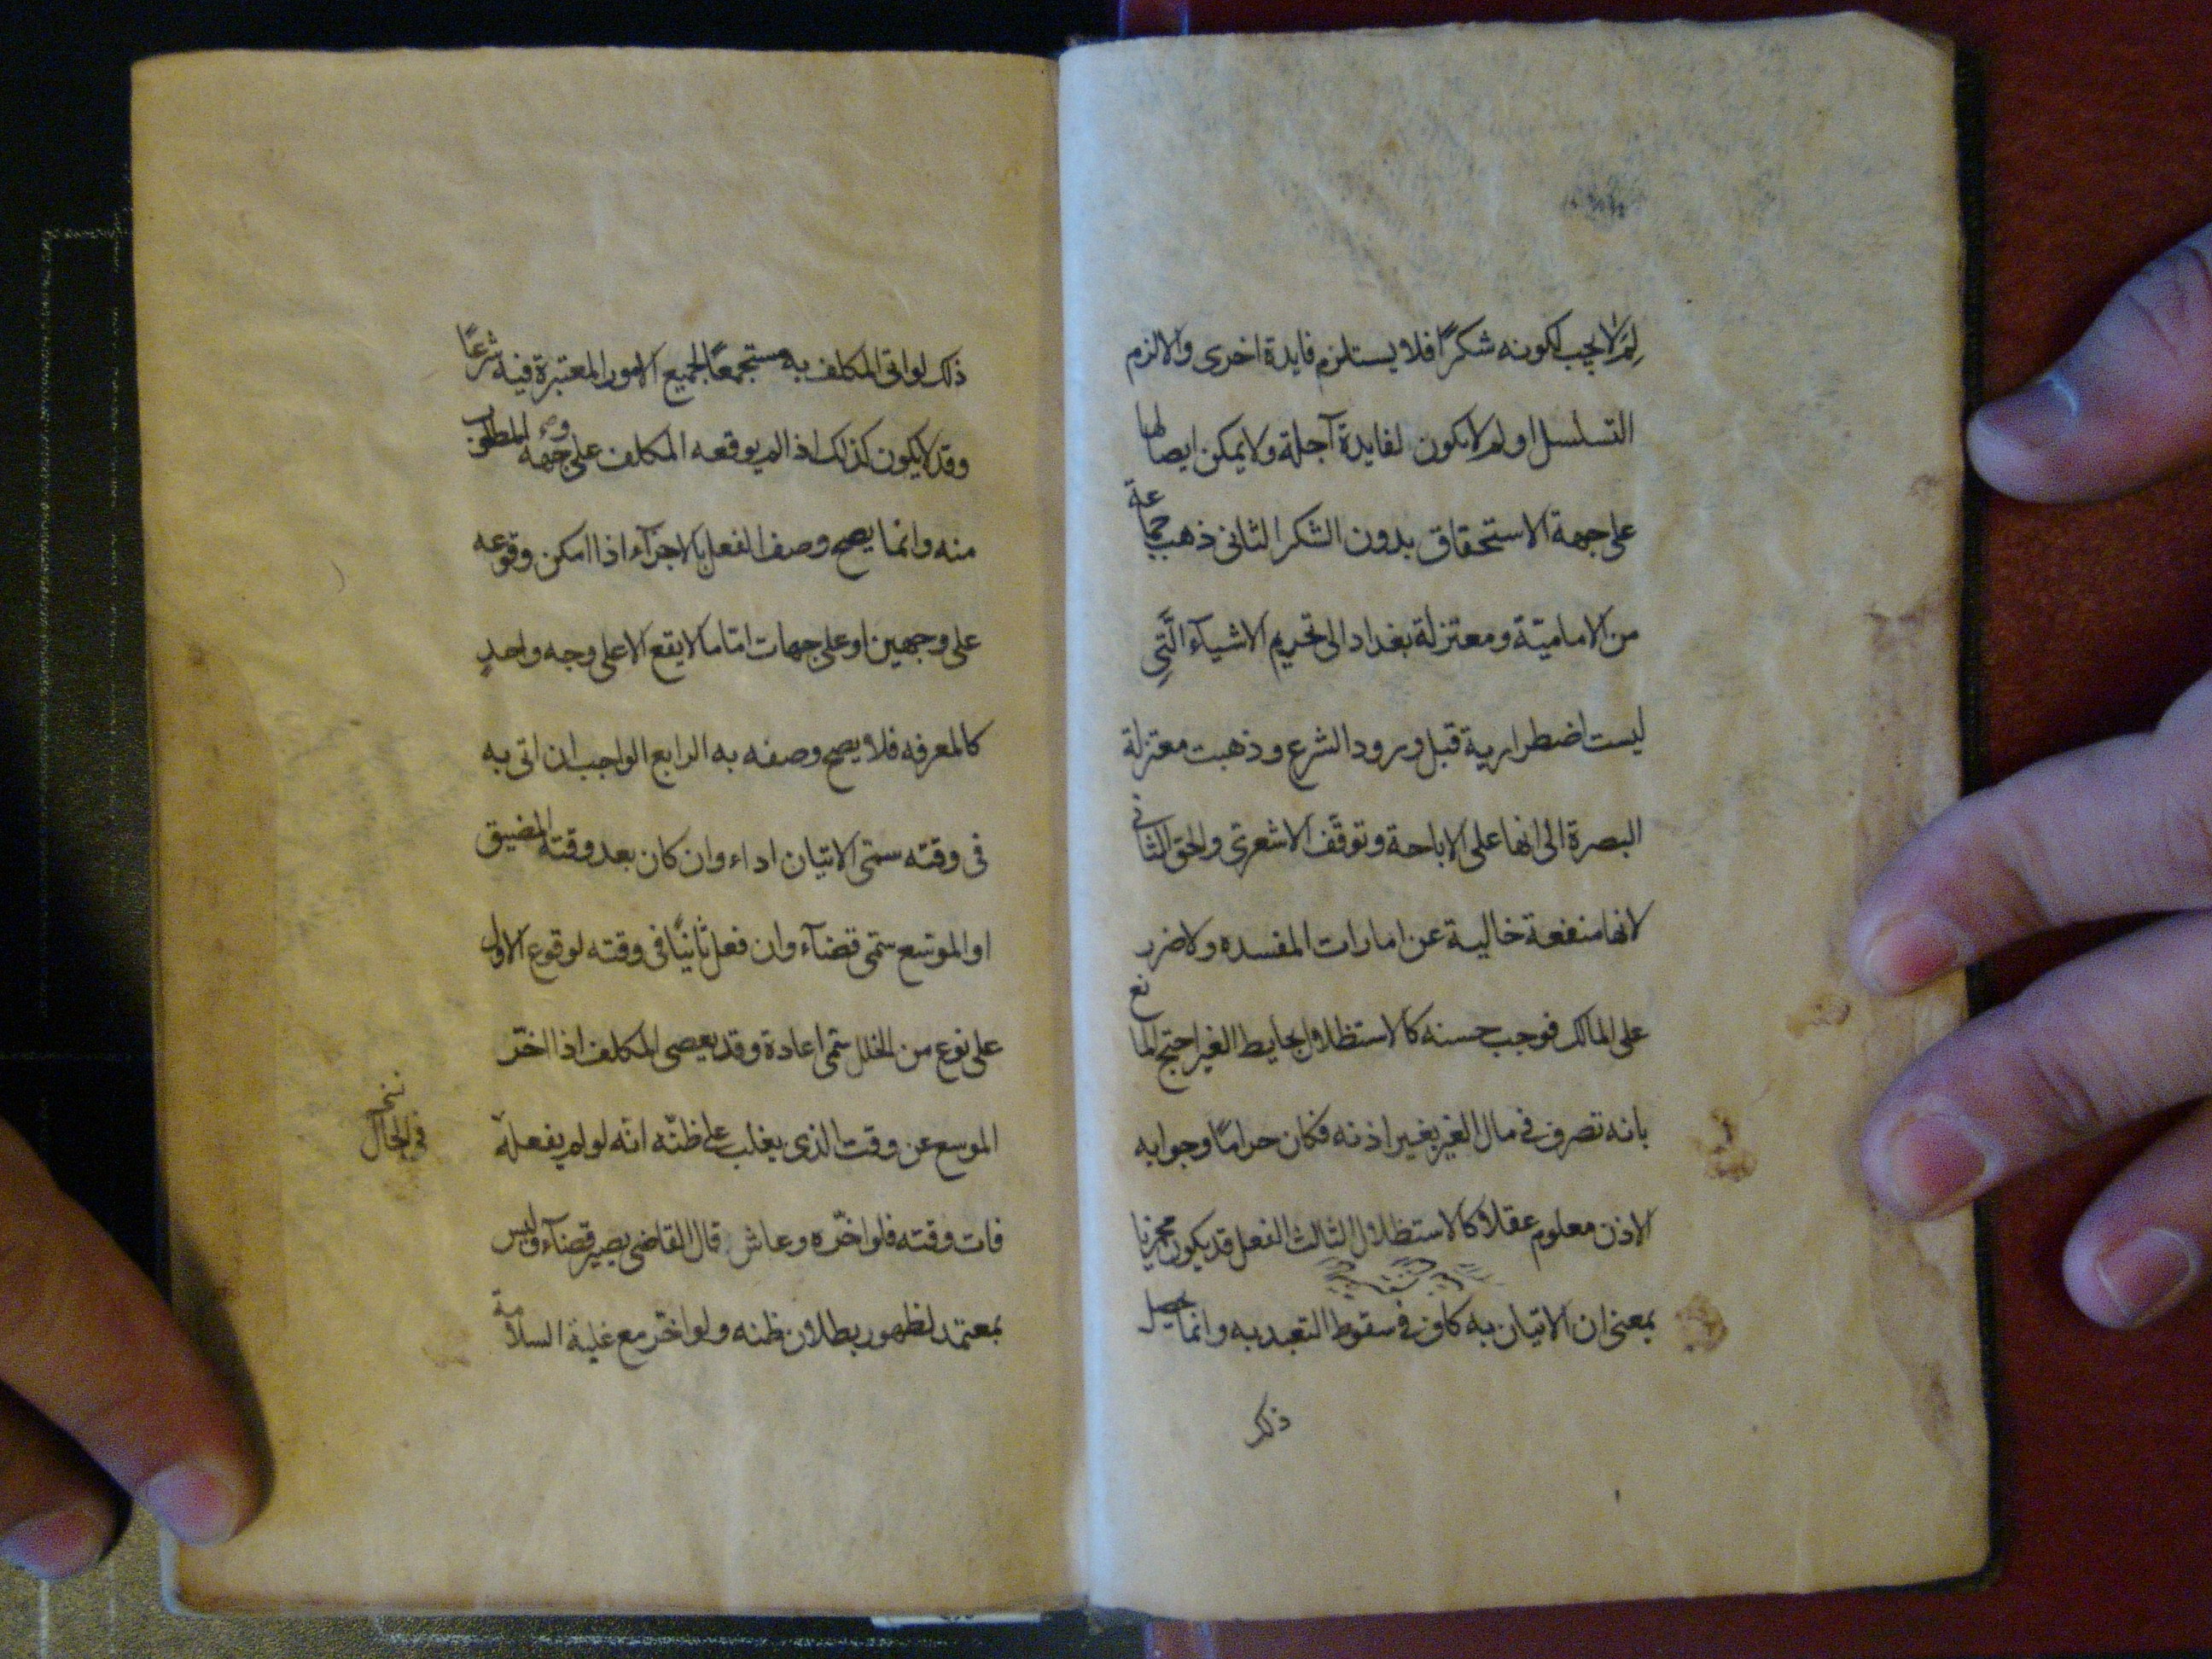 لِمَ لا يجب لكونه شكرًا فلا يستلزم فايدة اخرى والا لزم
التسلسل او لم لا يكون لفايدة آجلة ولا يمكن ايصالها
على جهة الاستحقاق بدون الشكر الثانى ذهب جماعة
من الاماميّة ومعتزلة بغداد الى تحريم الاشيآء الّتي
ليست اضطرارية قبل ورود الشرع وذهبت معتزلة
البصرة الى انها على الاباحة وتوقّف الاشعرى والحق الثانى
لانها منفعة خالية عن امارات المفسده ولا ضرر
على المالك فوجب حسنه كالاستظلال بحايط الغير احتج المانع
بانه تصرف فى مال الغير بغير اذنه فكان حرامًا وجوابه
الاذن معلوم عقلا كالاستظلال الثالث الفعل قد يكون مجزيا
بمعنى ان الاتيان به كاف فى سقوط التعبد به وانما يحصل
ذلك
ذلك لو اتى المكلف به مستجمعًا لجميع الامور المعتبرة فيه شرعًا
وقد لا يكون كذلك اذا لم يوقعه المكلف على جهه المطلوب
منه وانما يصح وصف الفعل بالاجزآء اذا امكن وقوعه
على وجهين او على جهات امّا ما لا يقع الا على وجه واحدٍ
كالمعرفه فلا يصح وصفه به الرابع الواجب ان اتى به
فى وقته سمّى الاتيان اداء وان كان بعد وقته المضيق
او الموسّع سمّى قضآء وان فعل ثانيًا فى وقته لوقوع الاول
على نوع من الخلل سمّى اعادة وقد يعصى المكلف اذا اخّر
الموسع عن وقت الذى يغلب على ظنّه انّه لو لم يفعله
فى الحال
فات وقته فلو اخّره وعاش قال القاضى يصير قضآء وليس
بمعتمد لظهور بطلان ظنه ولو اخّر مع غلبة السلامة